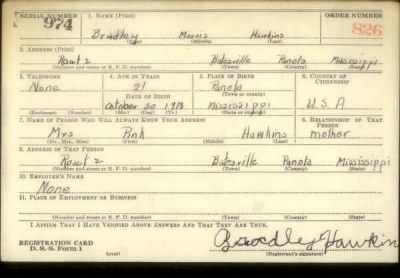 SERIAL NUMBER 1. NAME (Print) ORDER NUMBER
974 Bradley Morris Hawkins 826
(First) (Middle) (Last)
2. ADDRESS (Print)
Rout 2 Batesville Panola Mississippi
(Number and street or R. F. D. number) (Town) (County) (State)
3. TELEPHONE 4. AGE IN YEARS 5. PLACE OF BIRTH 6. COUNTRY OF CITIZENSHIP
None 21 Panola
DATE OF BIRTH (Town or county)
October 30 1918 Mississippi U.S.A
(Exchange) (Number) (Mo.) (Day) (Yr.) (State or country)
7. NAME OF PERSON WHO WILL ALWAYS KNOW YOUR ADDRESS 8. RELATIONSHIP OF THAT PERSON
Mrs Pink Hawkins mother
(Mr., Mrs., Miss) (First) (Middle) (Last)
9. ADDRESS OF THAT PERSON
Rout 2 Batesville Panola Mississippi
(Number and street or R. F. D. number) (Town) (County) (State)
10. EMPLOYER'S NAME
None
11. PLACE OF EMPLOYMENT OR BUSINESS
(Number and street or R. F. D. number) (Town) (County) (State)
I AFFIRM THAT I HAVE VERIFIED ABOVE ANSWERS AND THAT THEY ARE TRUE.
REGISTRATION CARD Bradley Hawkin
D. S. S. Form 1 (over) (Registrant's signature)